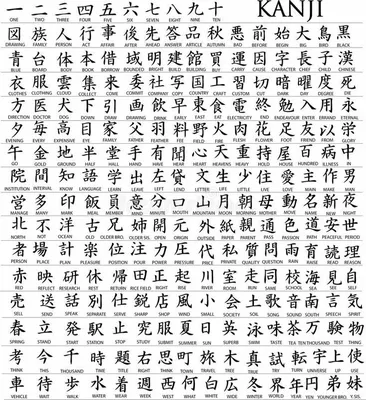 一 二 三 四 五 六 七 八 九 十 KANJI
ONE TWO THREE FOUR FIVE SIX SEVEN EIGHT NINE TEN
図 族 人 行 事 後 先 答 品 秋 悪 前 始 大 鳥 黒
DRAWING FAMILY PERSON ACT AFFAIR AFTER AHEAD ANSWER ARTICLE AUTUMN BAD BEFORE BEGIN BIG BIRD BLACK
青 台 体 本 借 域 明 建 館 買 運 因 字 長 子 漢
BLUE BOARD BODY BOOK BORROW BRIGHT BUILD BUILDING BUY CARRY CAUSE CHARACTER CHIEF CHILD CHINESE
衣 服 雲 集 来 委 社 写 国 工 習 切 暗 曜 度 死
CLOTHES CLOTHING CLOUD COLLECT COME COMMIT COMPANY COPY COUNTRY CRAFT CUSTOM CUT DARK DAY DEATH
方 医 犬 下 引 画 飲 早 東 食 電 終 勉 入 用 永
DIRECTION DOCTOR DOG DOWN DRAW DRAWING DRINK EARLY EAST EAT ELECTRICITY END ENDEAVOUR ENTER ERRAND ETERNAL
夕 毎 高 目 家 父 羽 料 野 火 肉 花 足 友 以 栄
EVENING EVERY EXPENSIVE EYE FAMILY FATHER FEATHER FEE FIELD FIRE FLESH FLOWER FOOT FRIEND FROM GLORY
行 金 地 半 堂 手 有 聞 心 天 重 持 屋 百 病 中
GO GOLD GROUND HALF HALL HAND HAVE HEAR HEART HEAVENS HEAVY HOLD HOUSE HUNDRED ILLNESS IN
院 間 知 語 学 出 左 貸 文 生 少 住 愛 主 作 男
INSTITUTION INTERVAL KNOW LANGUAGE LEARN LEAVE LEFT LEND LETTER LIFE LITTLE LIVE LOVE MAIN MAKE MAN
営 多 印 飯 員 意 分 口 山 月 朝 母 動 名 新 夜
MANAGE MANY MARK MEAL MEMBER MIND MINUTE MOUTH MOUNTAIN MOON MORNING MOTHER MOVE NAME NEW NIGHT
北 不 洋 古 兄 姉 開 元 外 紙 親 通 色 道 安 世
NORTH NOT OCEAN OLD OLDER BRO. OLDER SIS. OPEN ORIGIN OUTSIDE PAPER PARENT PASS PASSION PATH PEACEFUL PERIOD
者 場 計 楽 位 注 力 圧 代 私 質 問 雨 育 読 理
PERSON PLACE PLAN PLEASURE POSITION POUR POWER PRESSURE PRICE PRIVATE QUALITY QUESTION RAIN RAISE READ REASON
赤 映 研 休 帰 田 正 起 川 室 走 同 校 海 見 自
RED REFLECT RESEARCH REST RETURN RICE FIELD RIGHT RISE RIVER ROOM RUN SAME SCHOOL SEA SEE SELF
売 送 話 別 仕 鋭 店 風 小 会 土 歌 音 南 言 気
SELL SEND SPEAK SEPARATE SERVE SHARP SHOP WIND SMALL SOCIETY SOIL SONG SOUND SOUTH SAY SPIRIT
春 立 発 駅 止 究 服 夏 日 英 泳 味 茶 万 験 物
SPRING STAND START STATION STOP STUDY SUBMIT SUMMER SUN SUPERB SWIM TASTE TEA TEN THOUSAND TEST THING
考 今 千 時 題 右 思 町 旅 木 真 試 転 宇 上 使
THINK THIS THOUSAND TIME TITLE RIGHT TOWN TRAVEL TREE TRUE TRY TURN UNIVERSE UP USE
車 待 歩 水 着 週 西 何 白 広 冬 世 界 年 円 弟 妹
VEHICLE WAIT WALK WATER WEAR WEEK WEST WHAT WHITE WIDE WINTER WORLD YEAR YEN YOUNGER BRO. Y.SIS.